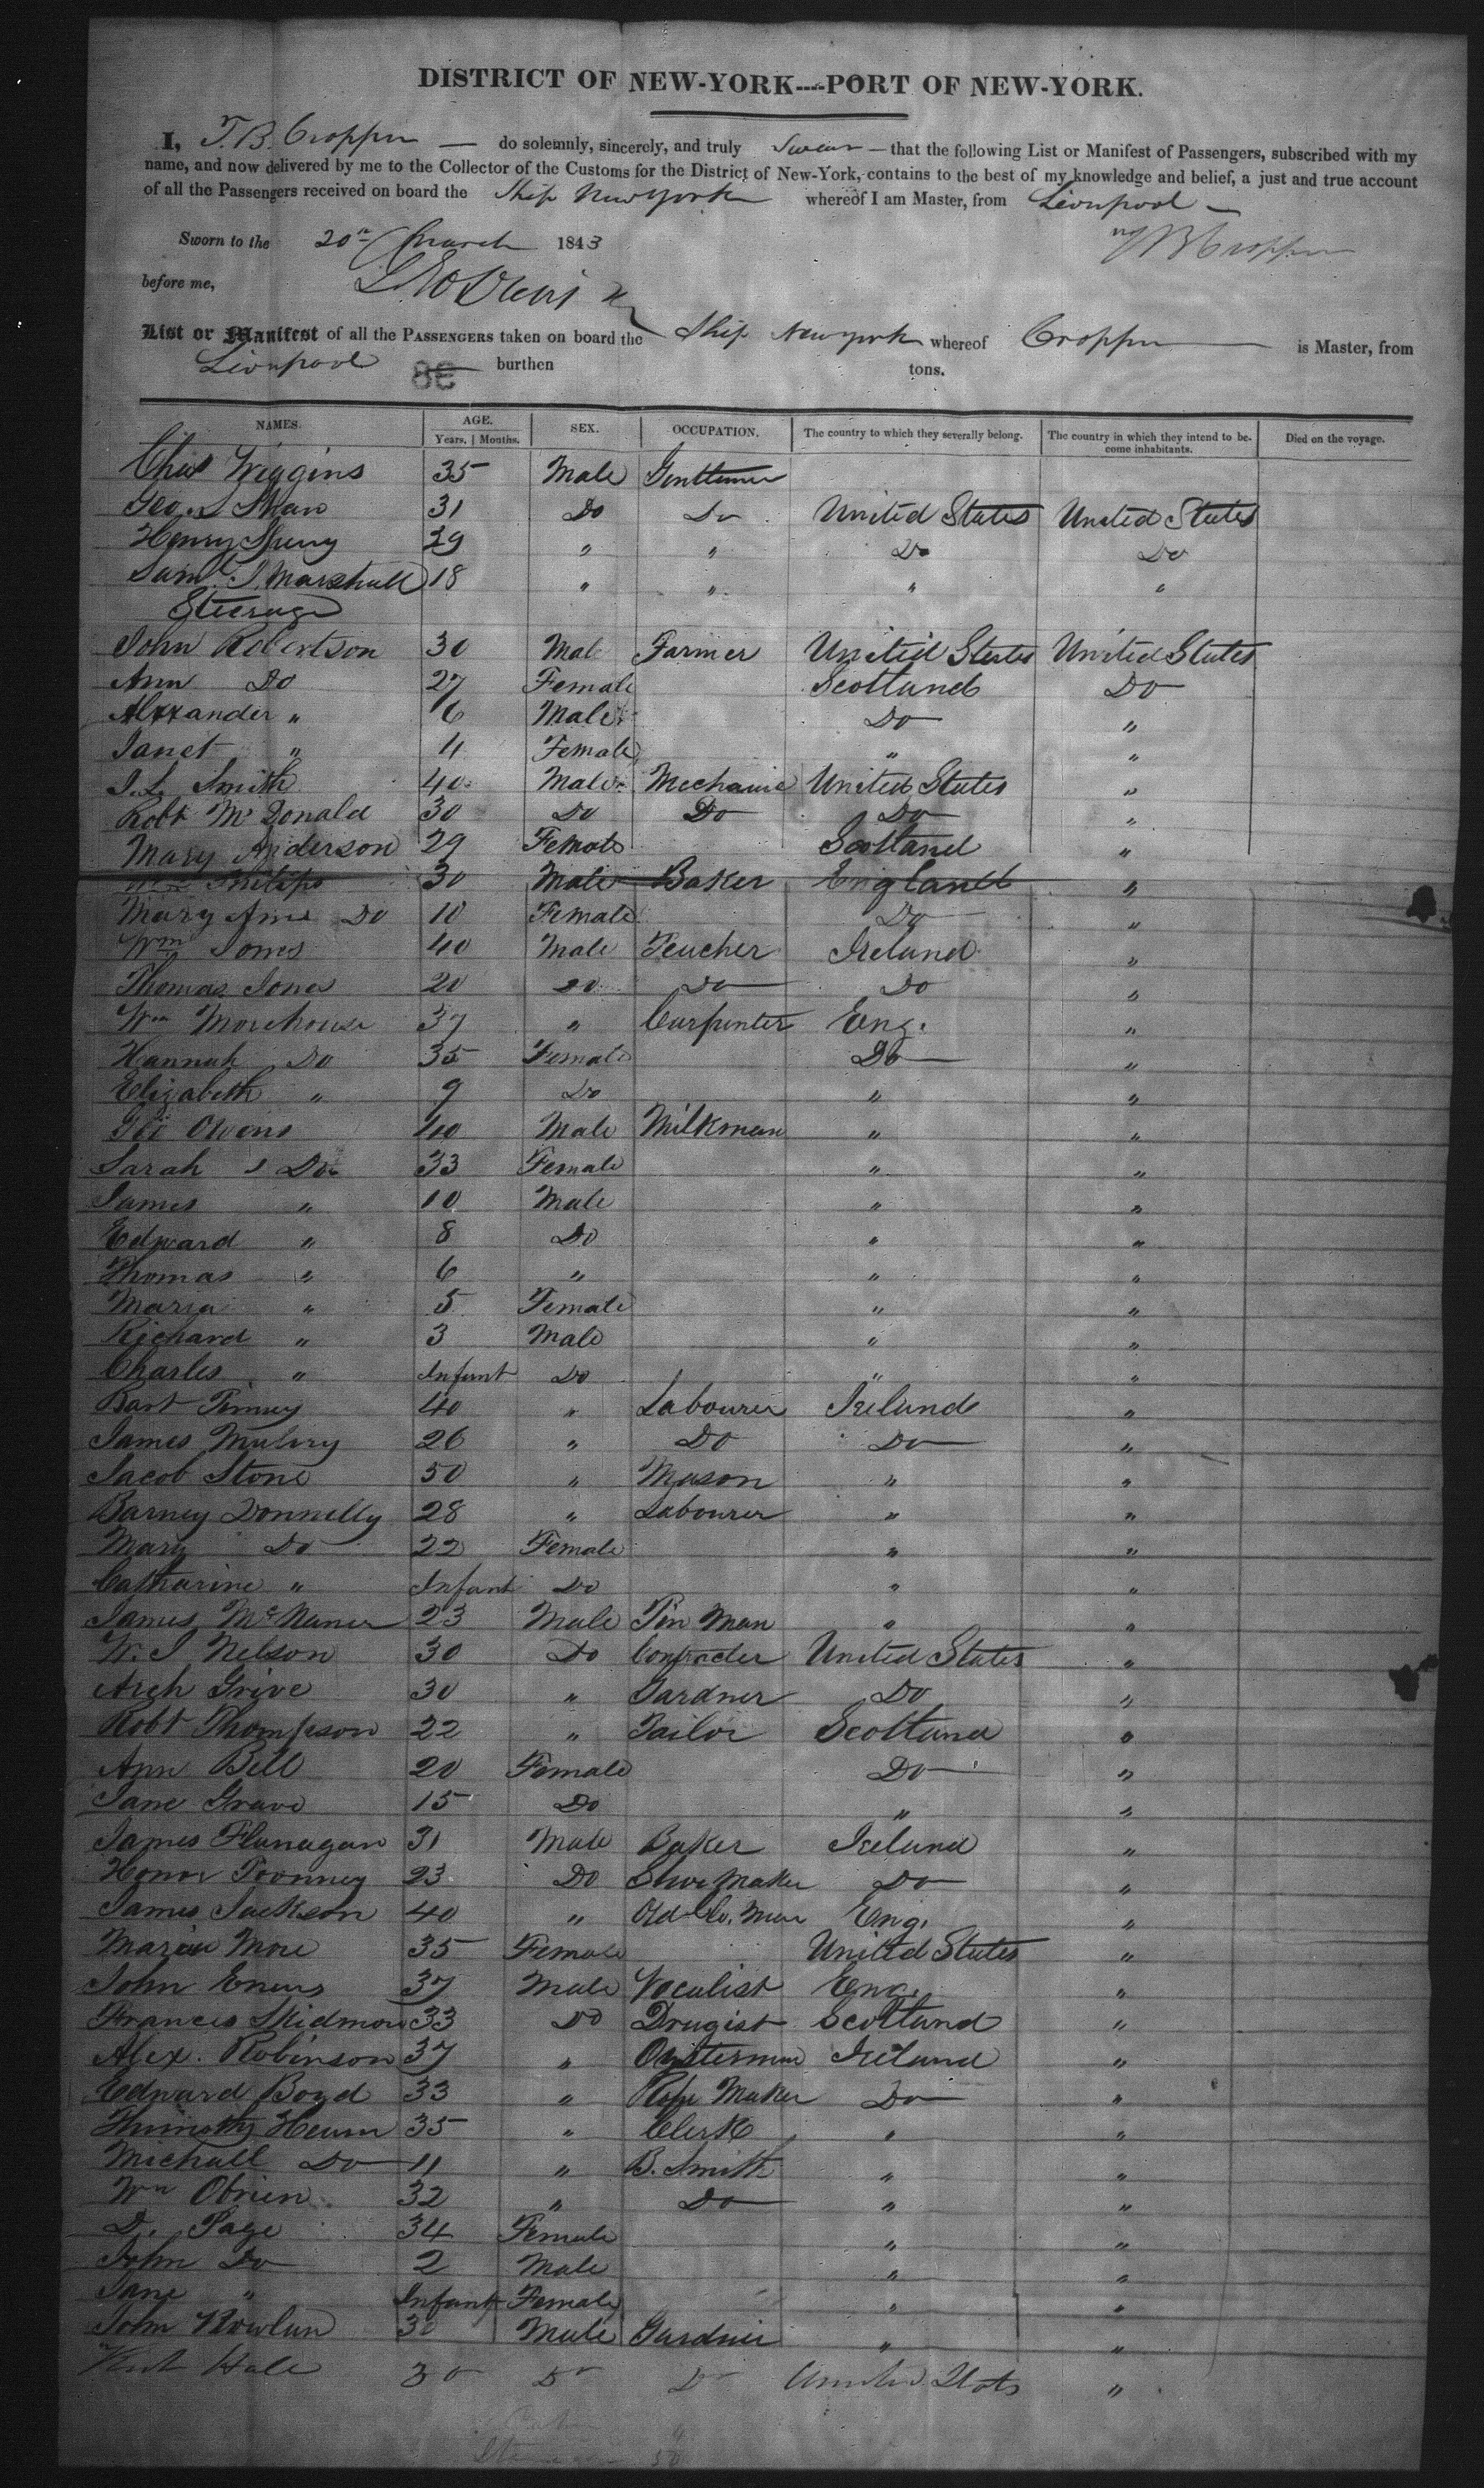 DISTRICT OF NEW-YORK----PORT OF NEW-YORK.
I, T. B. Cropper — do solemnly, sincerely, and truly Swear — that the following List or Manifest of Passengers, subscribed with my
name, and now delivered by me to the Collector of the Customs for the District of New-York, contains to the best of my knowledge and belief, a just and true account
of all the Passengers received on board the Ship New York whereof I am Master, from Liverpool —
Sworn to the 20th March 1843 T B Cropper
before me,
List or Manifest of all the PASSENGERS taken on board the Ship New york whereof Cropper is Master, from
Liverpool burthen tons.
NAMES. AGE. Years. | Months. SEX. OCCUPATION. The country to which they severally belong. The country in which they intend to become inhabitants. Died on the voyage.
Chas Wiggins 35 Male Gentleman
Geo. Shaw 31 Do Do United States United States
Henry 29 " " Do Do
Saml. J. Marshall 18 " " " "
Steerage
John Robertson 30 Male Farmer United States United States
Ann Do 27 Female Scotland Do
Alexander " 6 Male Do "
Janet " 4 Female " "
J. L. Smith 40 Male Mechanic United States "
Robt McDonald 30 Do Do Do "
Mary Anderson 29 Female Scotland "
Wm Philips 30 Male Baker England "
Mary Ann Do 10 Female Do "
Wm Jones 40 Male Teacher Ireland "
Thomas Jones 20 Do Do Do "
Wm Morehouse 37 " Carpenter Eng. "
Hannah Do 35 Female Do "
Elizabeth " 9 Do " "
Geo Owens 40 Male Milkman " "
Sarah Do 33 Female " "
James " 10 Male " "
Edward " 8 Do " "
Thomas " 6 " " "
Maria " 5 Female " "
Richard " 3 Male " "
Charles " Infant Do " "
Bart 40 " Labourer Ireland "
James Mulvry 26 " Do Do "
Jacob Stone 50 " Mason " "
Barney Donnelly 28 " Labourer " "
Mary Do 22 Female " "
Catharine " Infant Do " "
James 23 Male Tin Man " "
W. J. Nelson 30 Do United States "
Arch Grive 30 " Gardner Do "
Robt Thompson 22 " Tailor Scotland "
Ann Bell 20 Female Do "
Jane Grave 15 Do " "
James Flanagan 31 Male Baker Ireland "
Honor 23 Do Shoe Maker Do "
James Jackson 40 " Old Clo. Man Eng. "
Maria More 35 Female United States "
John 37 Male Vocalist Eng. "
Frances Skidmore 33 Do Drugist Scotland "
Alex. Robinson 37 " Oysterman Ireland "
Edward Boyd 33 " Rope Maker Do "
35 " Clerk " "
Michall Do 11 " B. Smith " "
Wm Obrien 32 " Do " "
D. Page 34 Female " "
John Do 2 Male " "
Jane " Infant Female " "
John Nowlan 30 Male Gardner " "
Hale 30 Do Do United Stats "